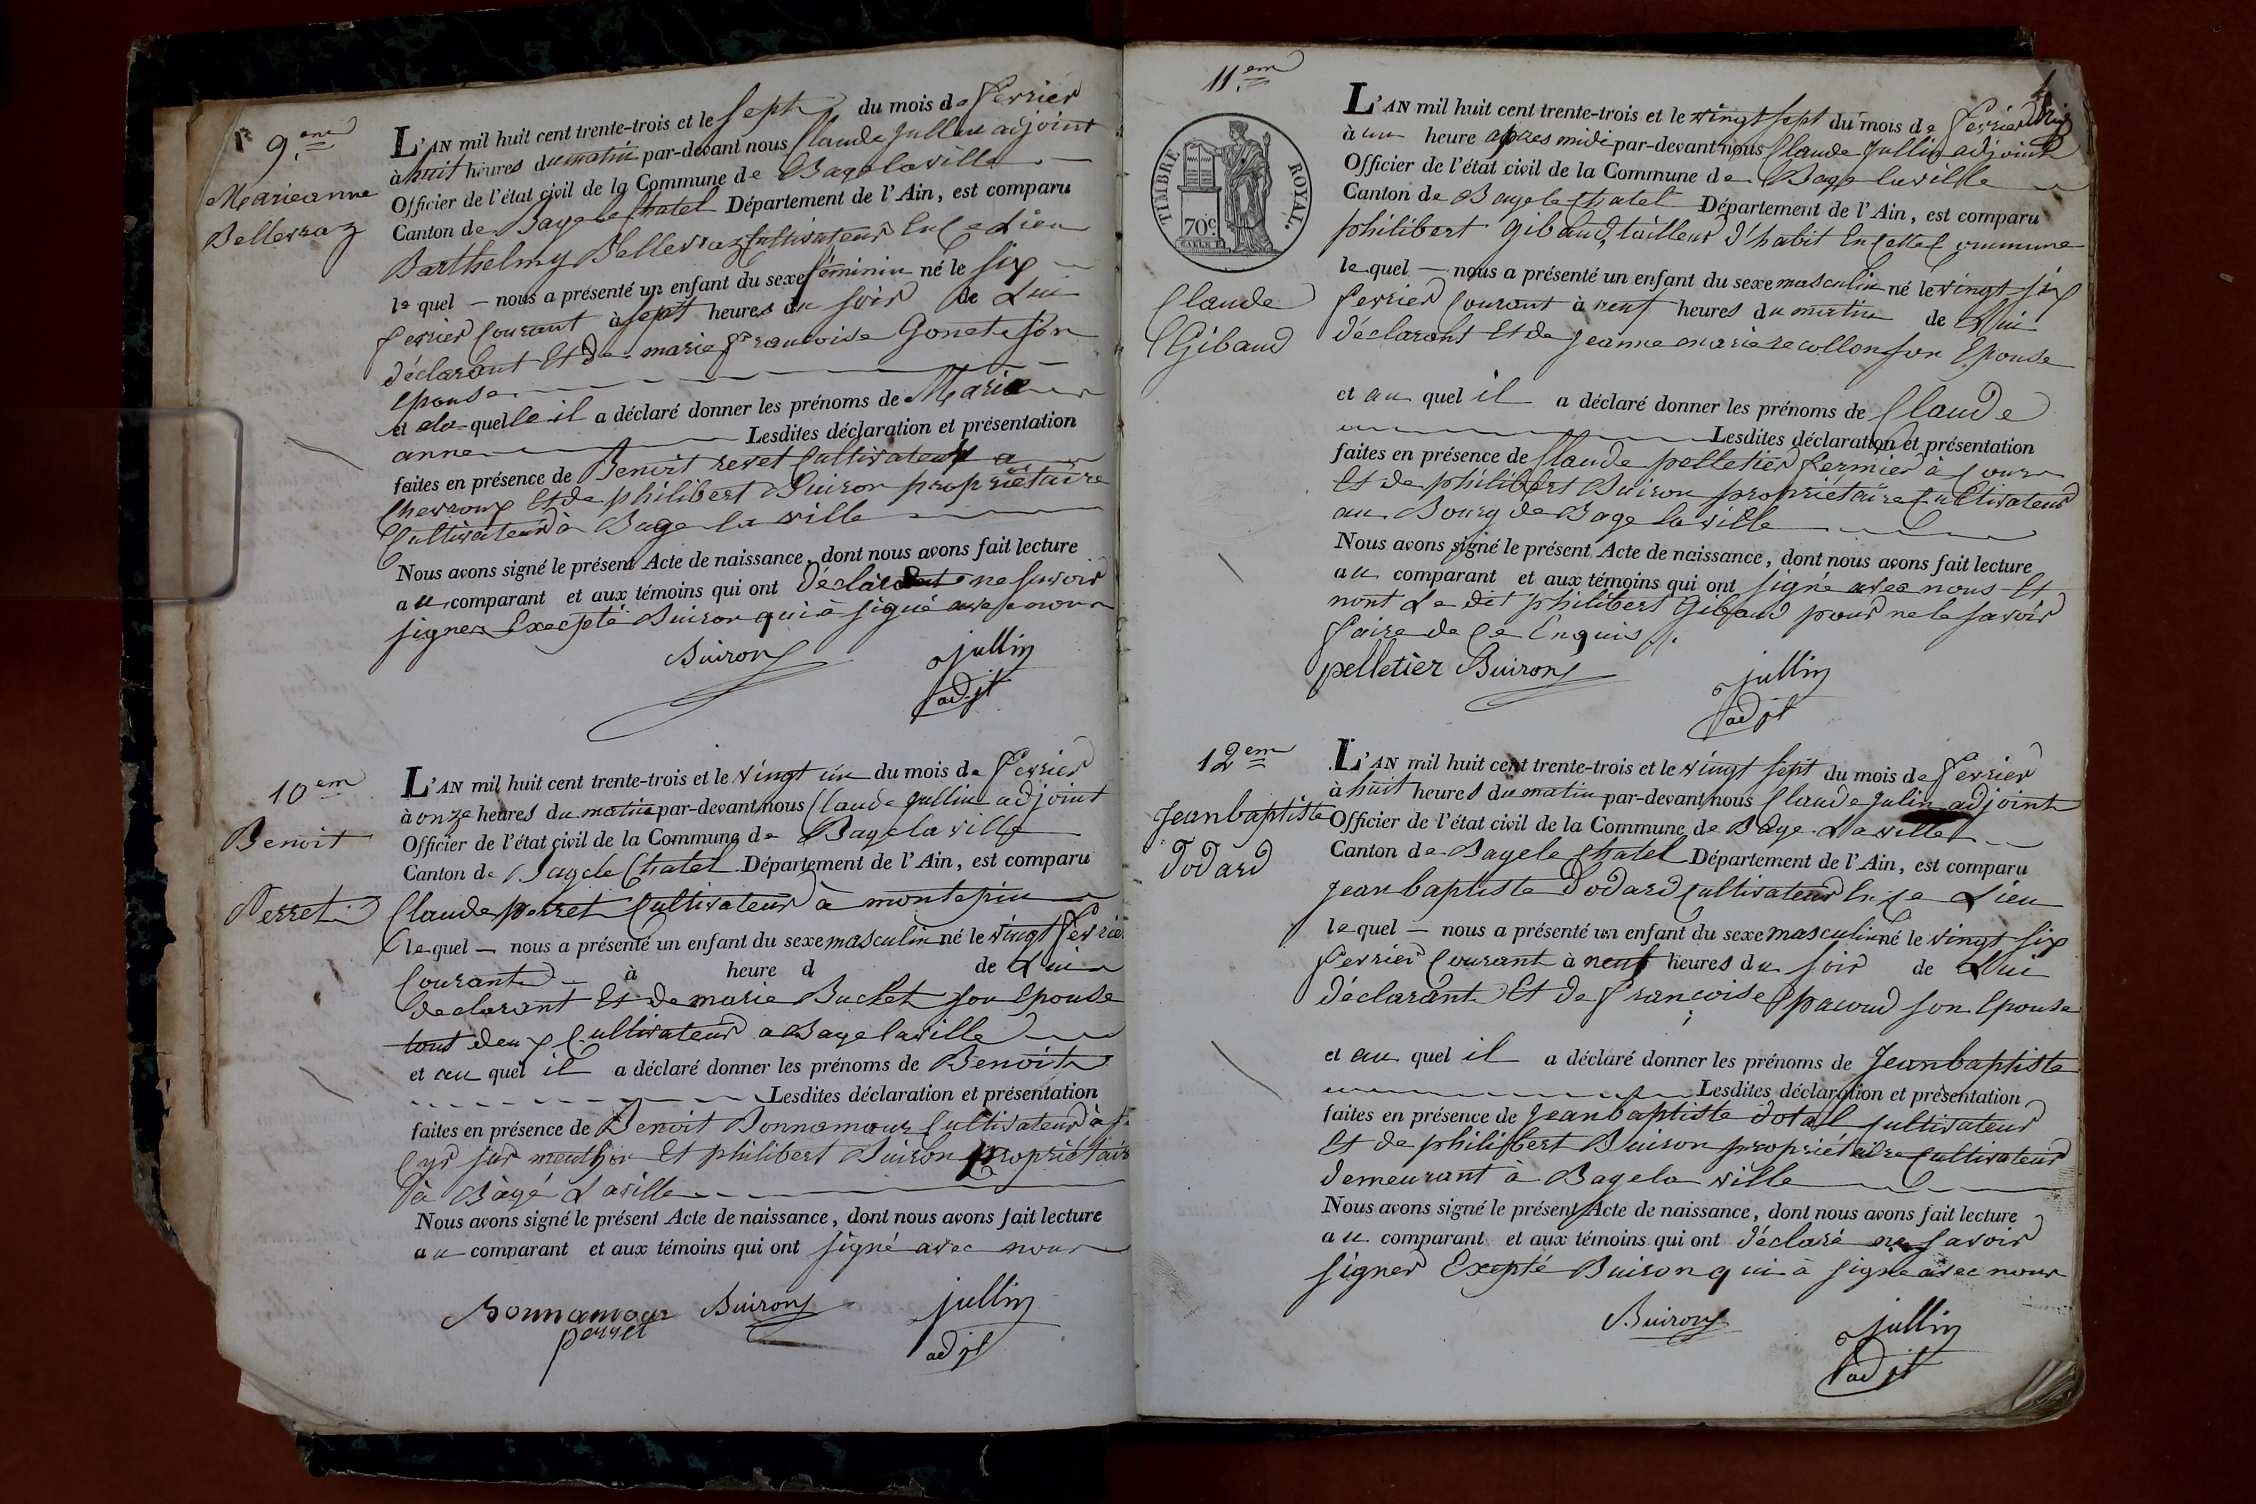 9.eme
Marieanne
Bellevraz
L'AN mil huit cent trente-trois et le sept du mois de fevrier
à huit heures du matin par-devant nous Claude Jullin adjoint
Officier de l'état civil de la Commune de Bagelaville
Canton de Bage le Chatel Département de l'Ain, est comparu
Barthelmy Bellevraz Cultivateur En Ce Lieu
le quel — nous a présenté un enfant du sexe féminin né le six
fevrier Courant à sept heures du soir de Lui
déclarant Et de marie francoise Gonet son
Epouse
et a la quelle il a déclaré donner les prénoms de Marie
anne Lesdites déclaration et présentation
faites en présence de Benoit revet Cultivateur a
Chevroux Et de philibert Buiron propriétaire
Cultivateur à Bage la ville
Nous avons signé le présent Acte de naissance, dont nous avons fait lecture
au comparant et aux témoins qui ont déclaré ne savoir
signer Excepté Buiron qui à signé avec nous
Buiron jullin
adjt
10em
Benoit
Perret
L'AN mil huit cent trente-trois et le vingt un du mois de fevrier
à onze heures du matin par-devant nous Claude Jullin adjoint
Officier de l'état civil de la Commune de Bagelaville
Canton de Bage le Chatel Département de l'Ain, est comparu
Claude perret Cultivateur à montepin
le quel — nous a présenté un enfant du sexe masculin né le vingt fevrier
Courant à heure d de Lui
Declarant Et de marie Buchet son Epouse
tout deux Cultivateur a Bagelaville
et au quel il a déclaré donner les prénoms de Benoit
Lesdites déclaration et présentation
faites en présence de Benoit Bonnamour Cultivateur à St
Cyr sur menthon Et philibert Buiron propriétair
à Bàgé Laville
Nous avons signé le présent Acte de naissance, dont nous avons fait lecture
au comparant et aux témoins qui ont signé avec nous
Bonnamour Buiron jullin
perret adjt
11.em
TIMBRE ROYAL.
70c
Claude
Gibaud
L'AN mil huit cent trente-trois et le vingt sept du mois de fevrier
à un heure apres midi par-devant nous Claude Jullin adjoint
Officier de l'état civil de la Commune de Bage laville
Canton de Bage le Chatel Département de l'Ain, est comparu
philibert Gibaud, tailleur d'habit En Cette Commune
le quel — nous a présenté un enfant du sexe masculin né le vingt six
fevrier Courant à neuf heures du matin de Lui
déclarant Et de Jeanne marie recollon son Epouse
et au quel il a déclaré donner les prénoms de Claude
Lesdites déclaration et présentation
faites en présence de Claude pelletier fermier à
Et de philibert Buiron propriétaire Cultivateur
au Bourg de Bage la ville
Nous avons signé le présent Acte de naissance, dont nous avons fait lecture
au comparant et aux témoins qui ont signé avec nous Et
nont Le dit philibert Gibaud pour ne le savoir
faire de Ce Enquis
pelletier Buiron jullin
adjt
12em
Jeanbaptiste
Dodard
L'AN mil huit cent trente-trois et le vingt sept du mois de fevrier
à huit heures du matin par-devant nous Claude Julin adjoint
Officier de l'état civil de la Commune de Bage Laville
Canton de Bage le Chatel Département de l'Ain, est comparu
Jean baptiste Dodard Cultivateur En Ce Lieu
le quel — nous a présenté un enfant du sexe masculin né le vingt six
fevrier Courant à neuf heures du soir de Lui
déclarant Et de francoise pacoud son Epouse
et au quel il a déclaré donner les prénoms de Jeanbaptiste
Lesdites déclaration et présentation
faites en présence de Jeanbaptiste dotal Cultivateur
Et de philibert Buiron propriétaire Cultivateur
demeurant à Bagela ville
Nous avons signé le présent Acte de naissance, dont nous avons fait lecture
au comparant et aux témoins qui ont déclaré ne savoir
signer Excepté Buiron qui à signé avec nous
Buiron jullin
adjt